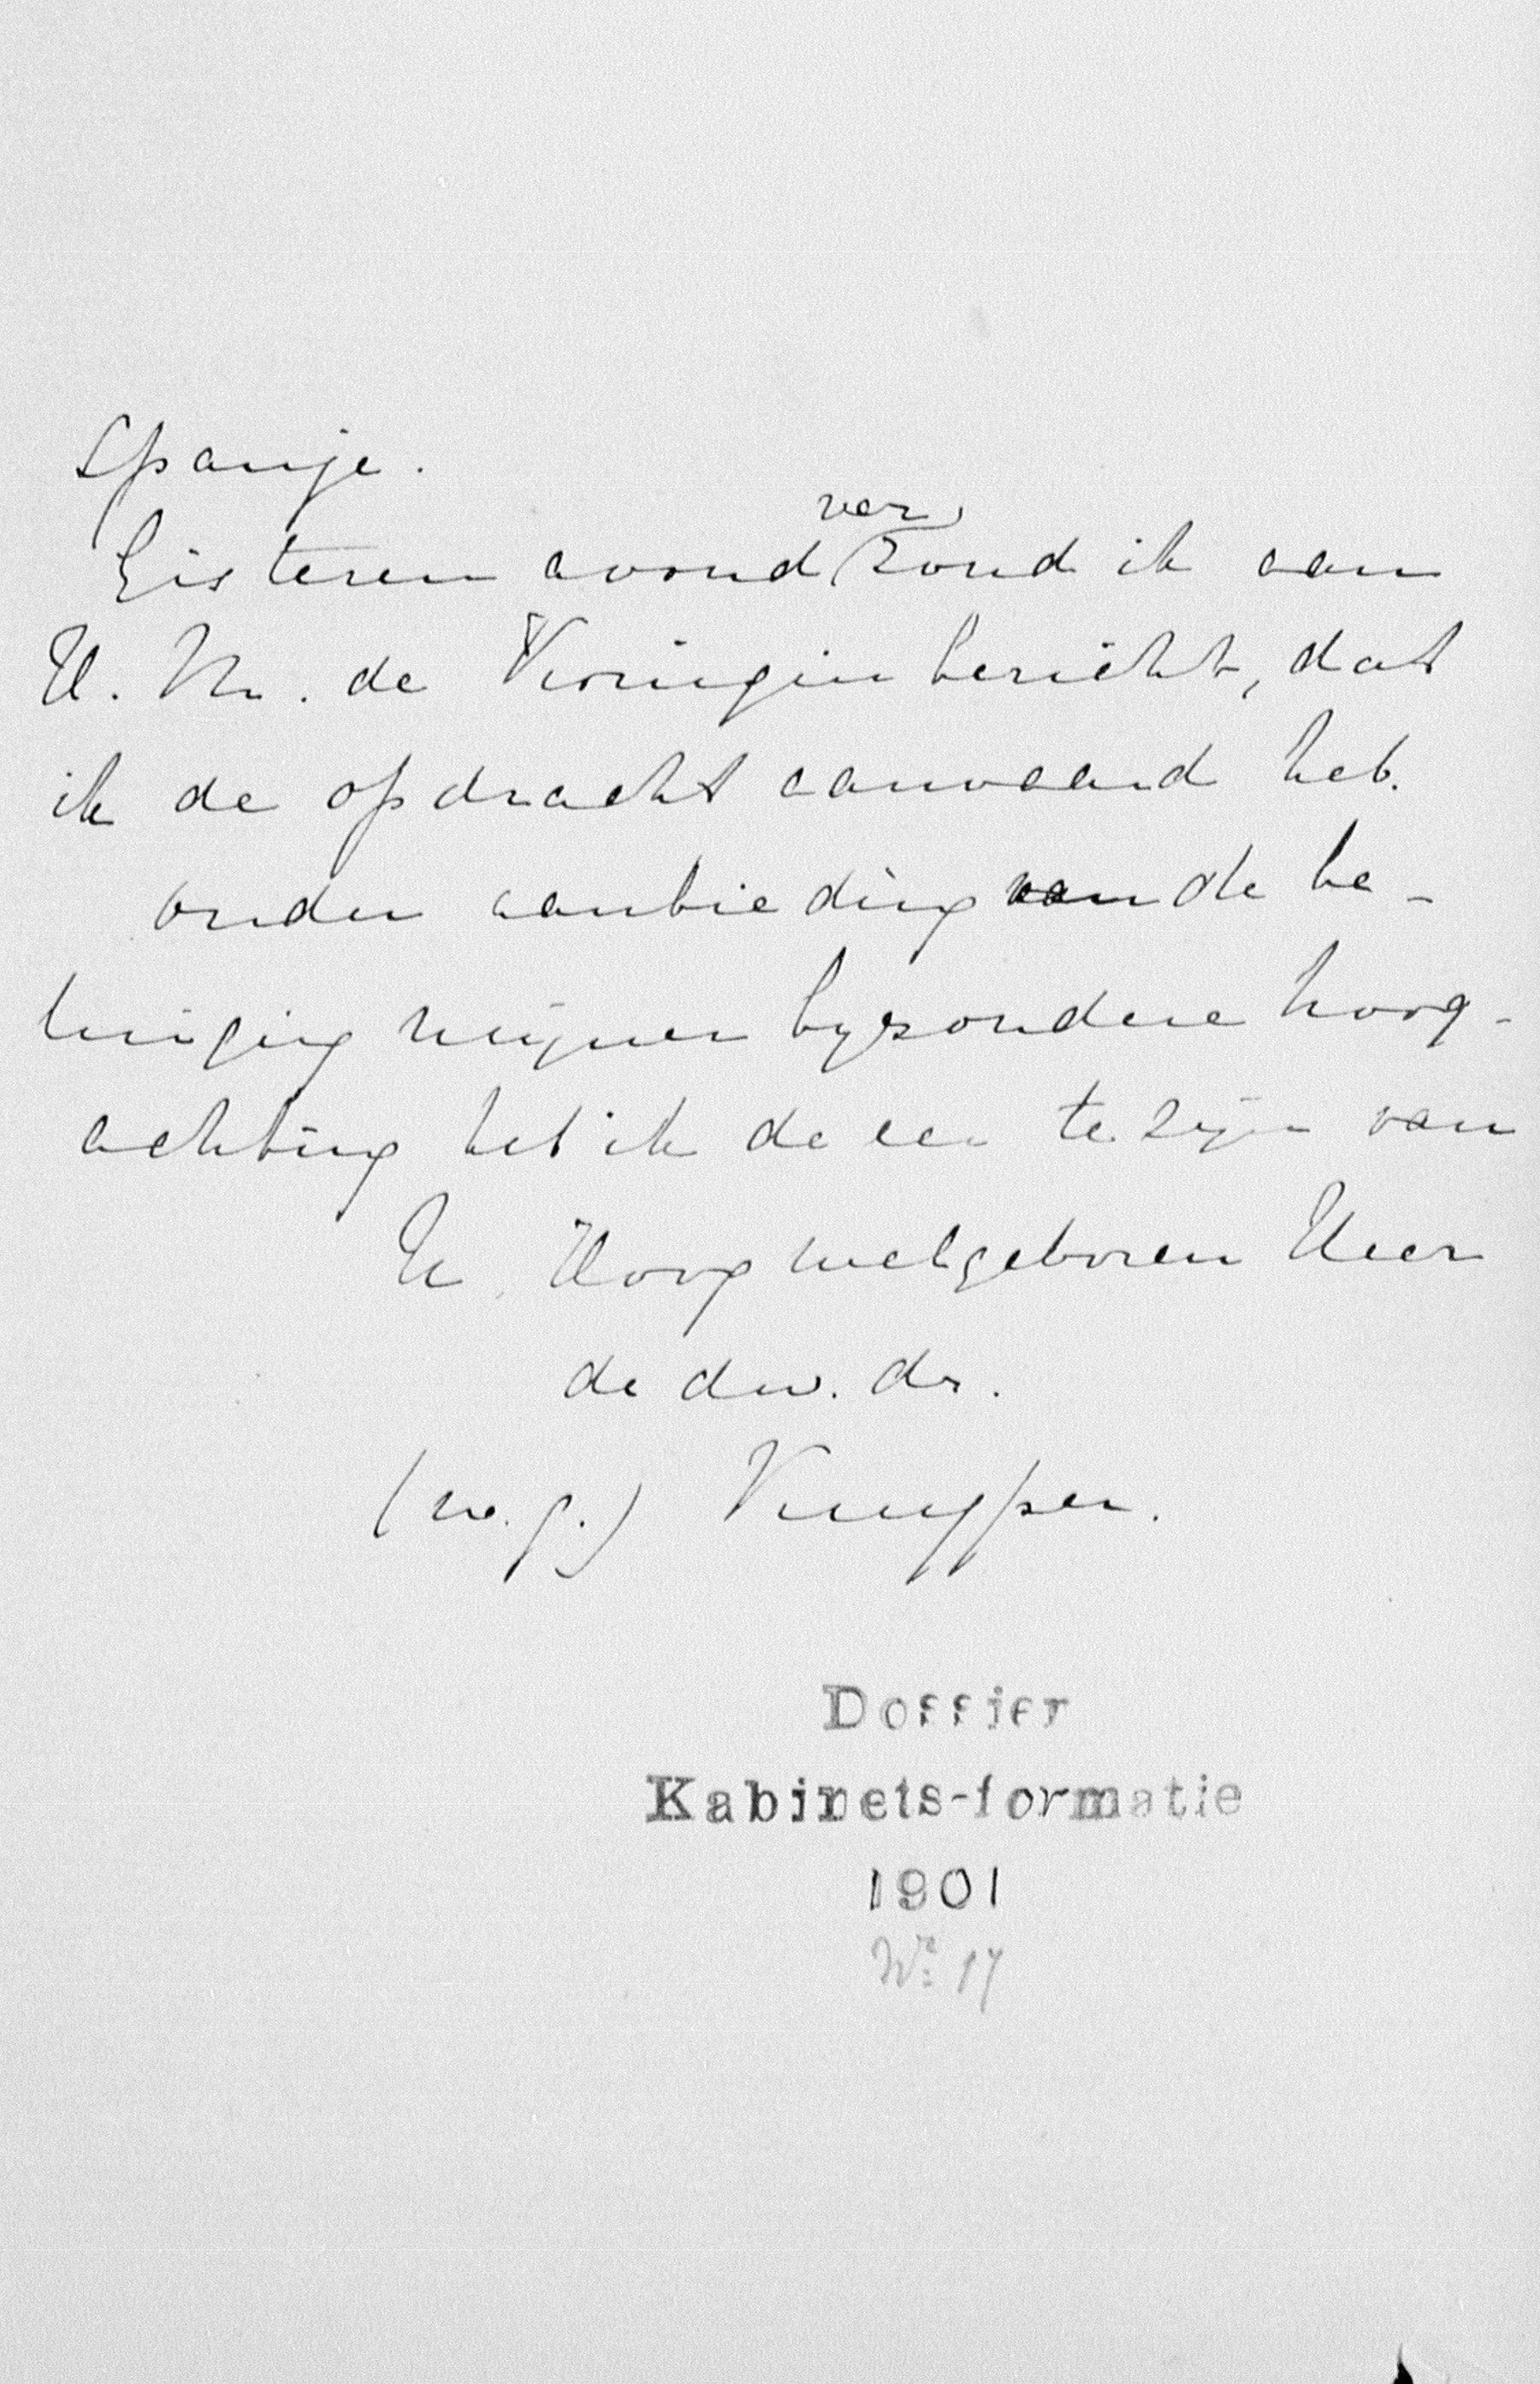 Spanje.
Gisteren avond verzond ik aan
H. M. de Koningin bericht, dat
ik de opdracht aanvaard heb.
onder aanbieding van de be-
tuiging mijner byzondere hoog-
achting heb ik de eer te zijn van
U Hoogwelgeboren Heer
de dw. dr.
(w.g.) Kuyper.
Dossier
Kabinets-formatie
1901
No 17